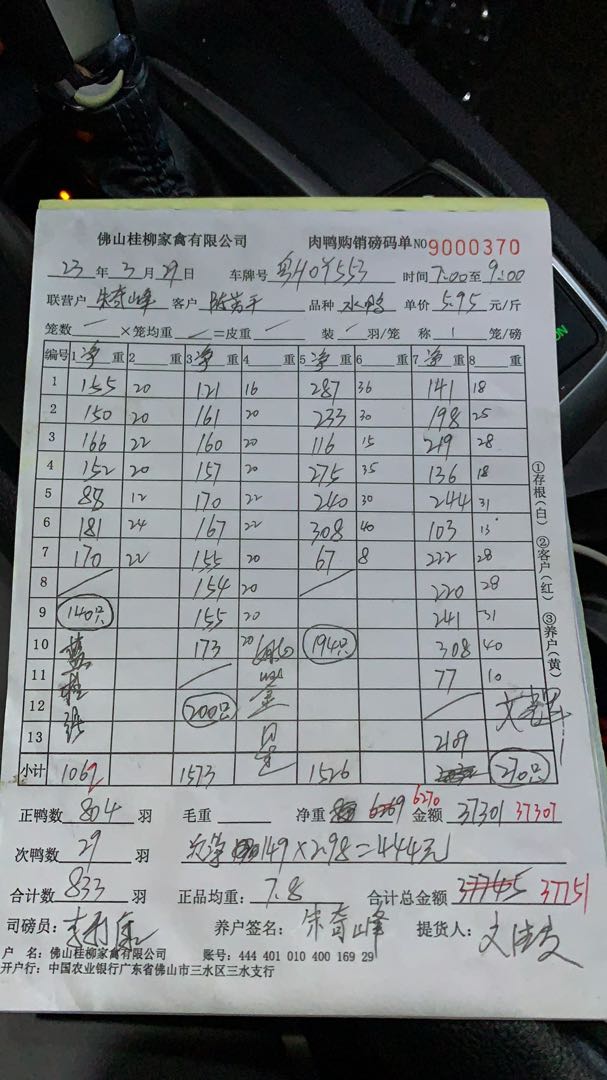 佛山桂柳家禽有限公司 肉鸭购销磅码单 NO 9000370
23 年 3 月 29 日 车牌号 粤H0Y553 时间 7:00 至 9:00
联营户 朱奇峰 客户 品种 水鸭 单价 5.95 元/斤
笼数 — ×笼均重 — =皮重 装 羽/笼 称 笼/磅
编号 1 净 重 2 重 3 净 重 4 重 5 净 重 6 重 7 净 重 8 重
1 155 20 121 16 287 36 141 18
2 150 20 161 20 233 30 198 25
3 166 22 160 20 116 15 219 28
4 152 20 157 20 275 35 136 18
5 88 12 170 22 240 30 244 31
6 181 24 167 22 308 40 103 13
7 170 22 155 20 67 8 222 28
8 154 20 220 28
9 140只 155 20 241 31
10 173 20 194只 308 40
11 77 10
12 200只
13 2109
小计 1062 1573 1526 270只
正鸭数 804 羽 毛重 净重 6269 6270 金额 37301 37307
次鸭数 29 羽 次净 149×2.98=444元
合计数 833 羽 正品均重: 7.8 合计总金额 37745 37751
司磅员: 养户签名: 朱奇峰 提货人:
户 名: 佛山桂柳家禽有限公司 账号: 444 401 010 400 169 29
开户行: 中国农业银行广东省佛山市三水区三水支行
①存根(白) ②客户(红) ③养户(黄)